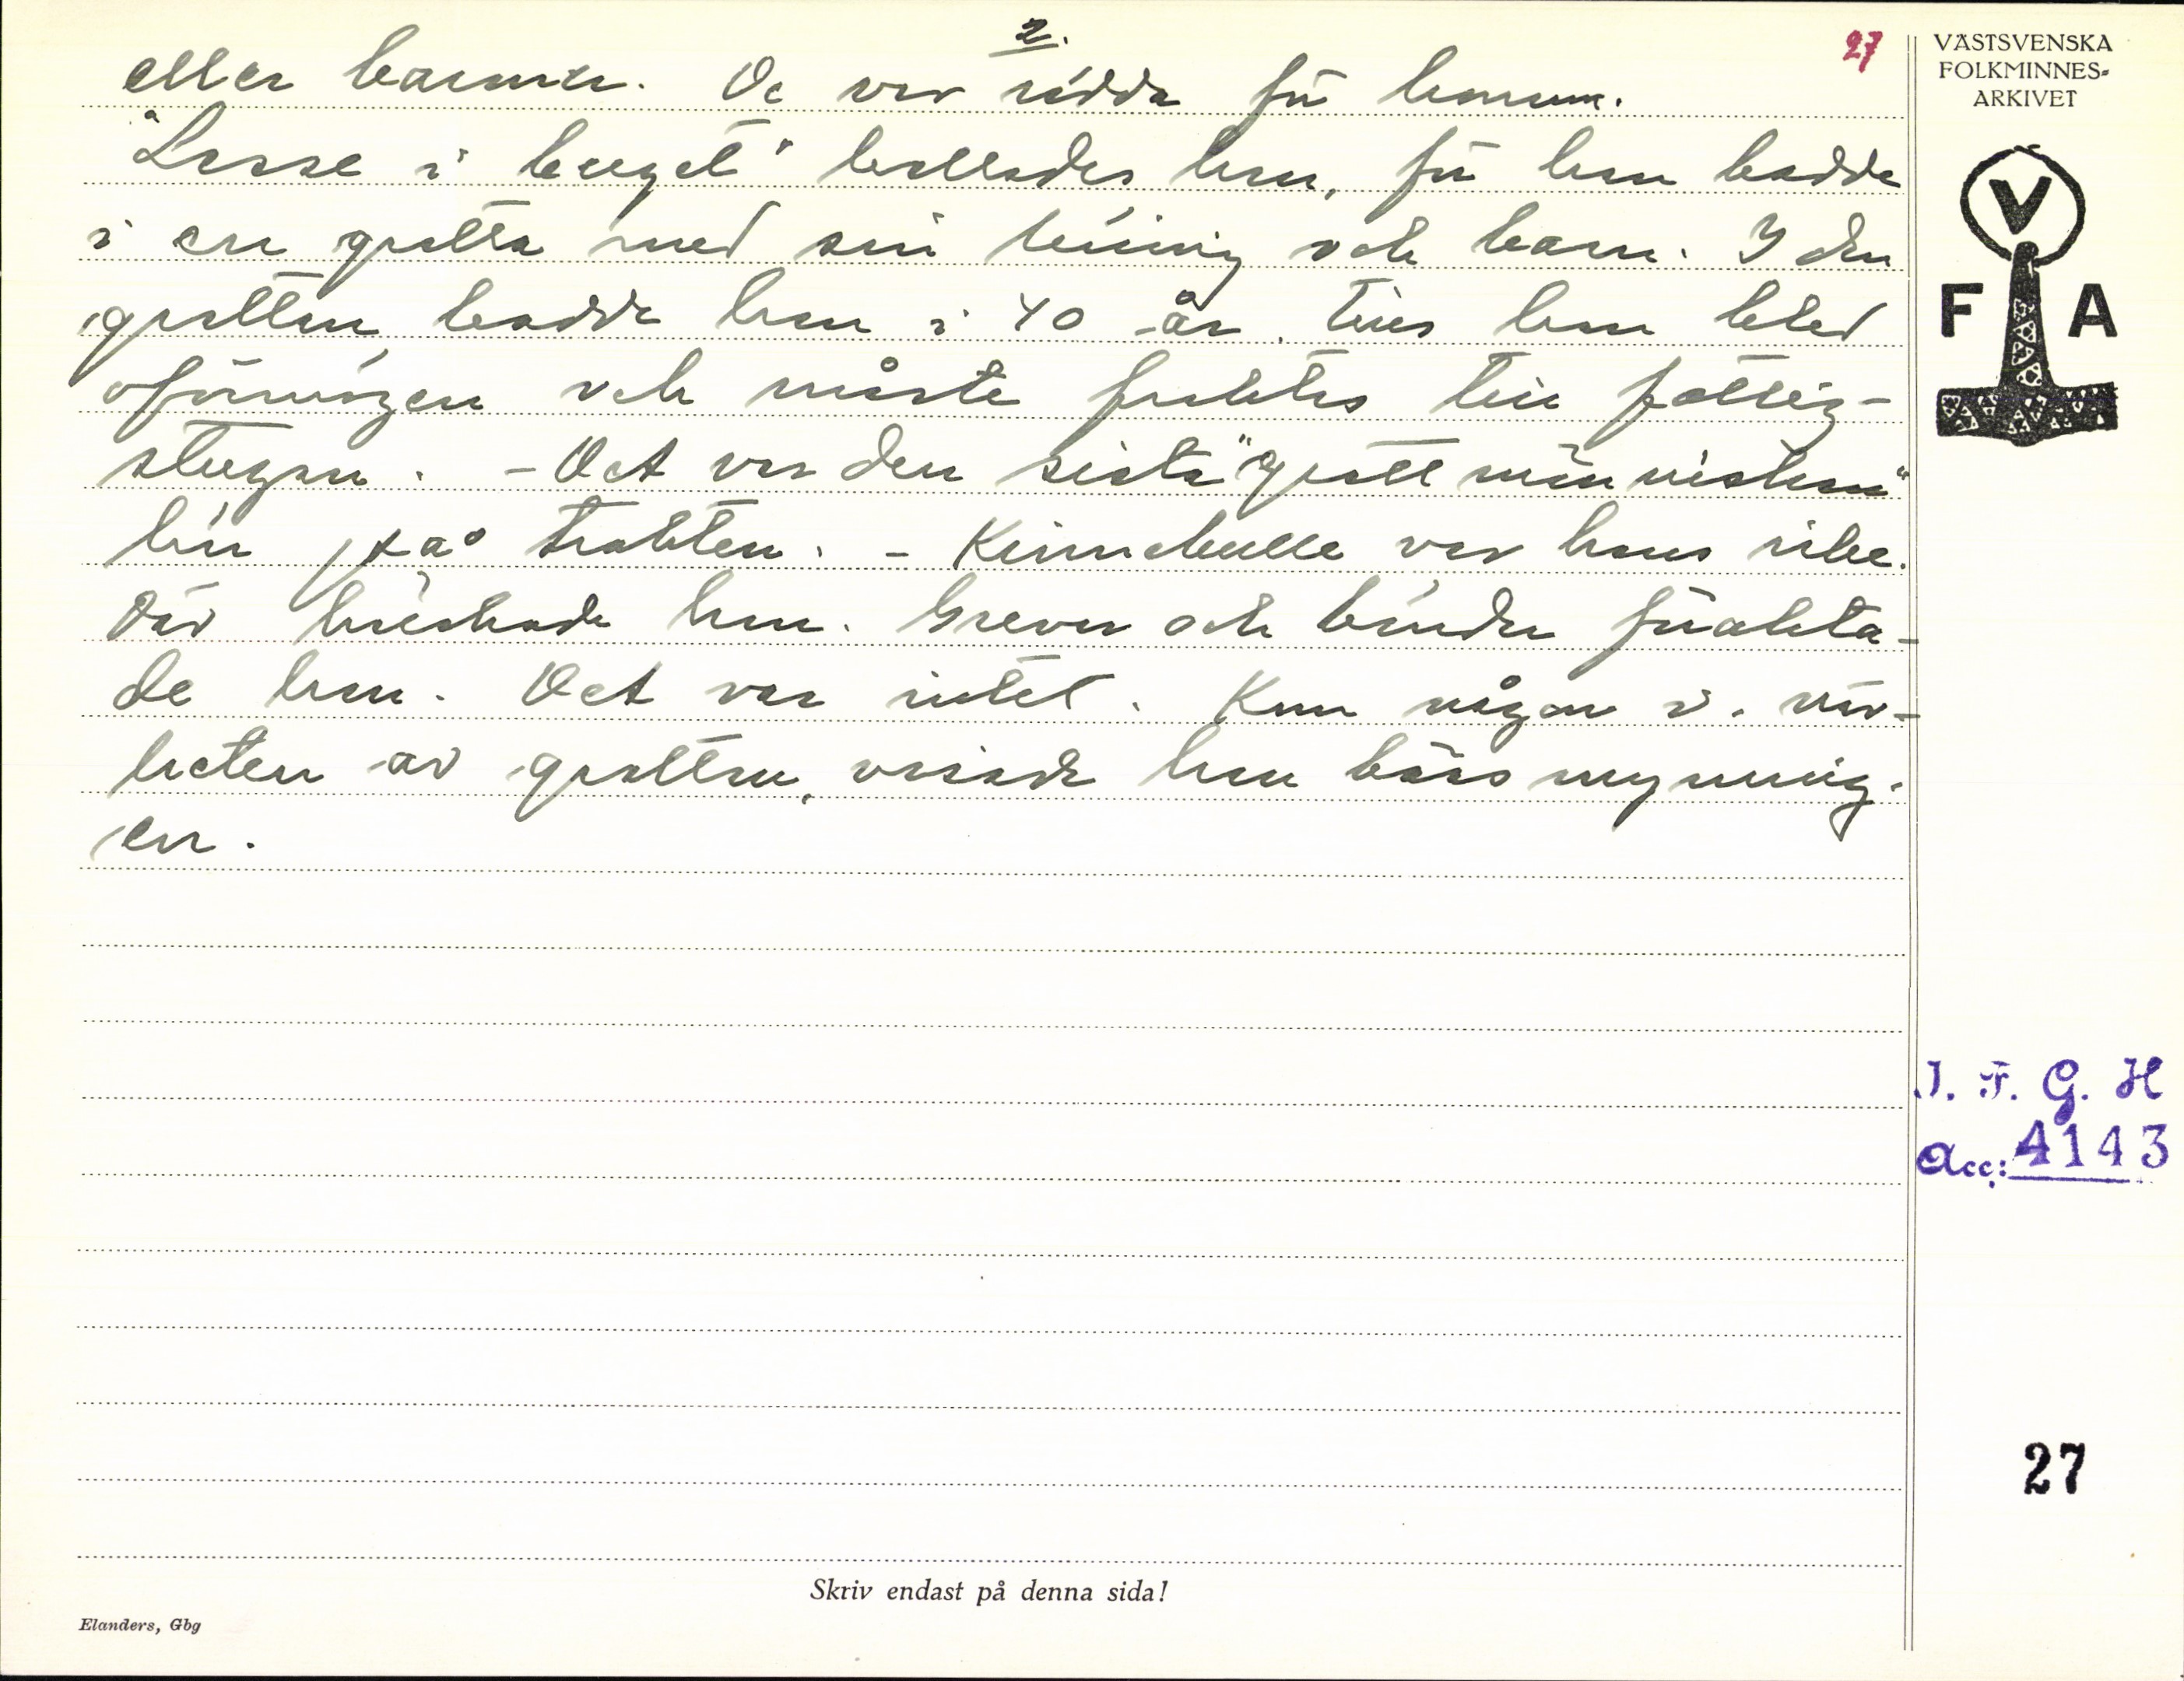 2.
27
eller barnen. De var rädda för honom.
"Lasse i berget" kallades han, för han bodde
i en grotta med sin käring och barn. I den
grottan bodde han i 40 år, tills han blev
oförmögen och måste fraktas till fattig-
stugan. - Det var den sista "grottmänniskan"
här på trakten. - Kinnekulle var hans rike.
Där härskade han. Grevar och bönder förakta-
de han. Det var intet. Kom någon i när-
heten av grottan, visade han bössmynning-
en.
VÄSTSVENSKA
FOLKMINNES-
ARKIVET
V
F A
I. F. G. H
Acc: 4143
27
Skriv endast på denna sida!
Elanders, Gbg